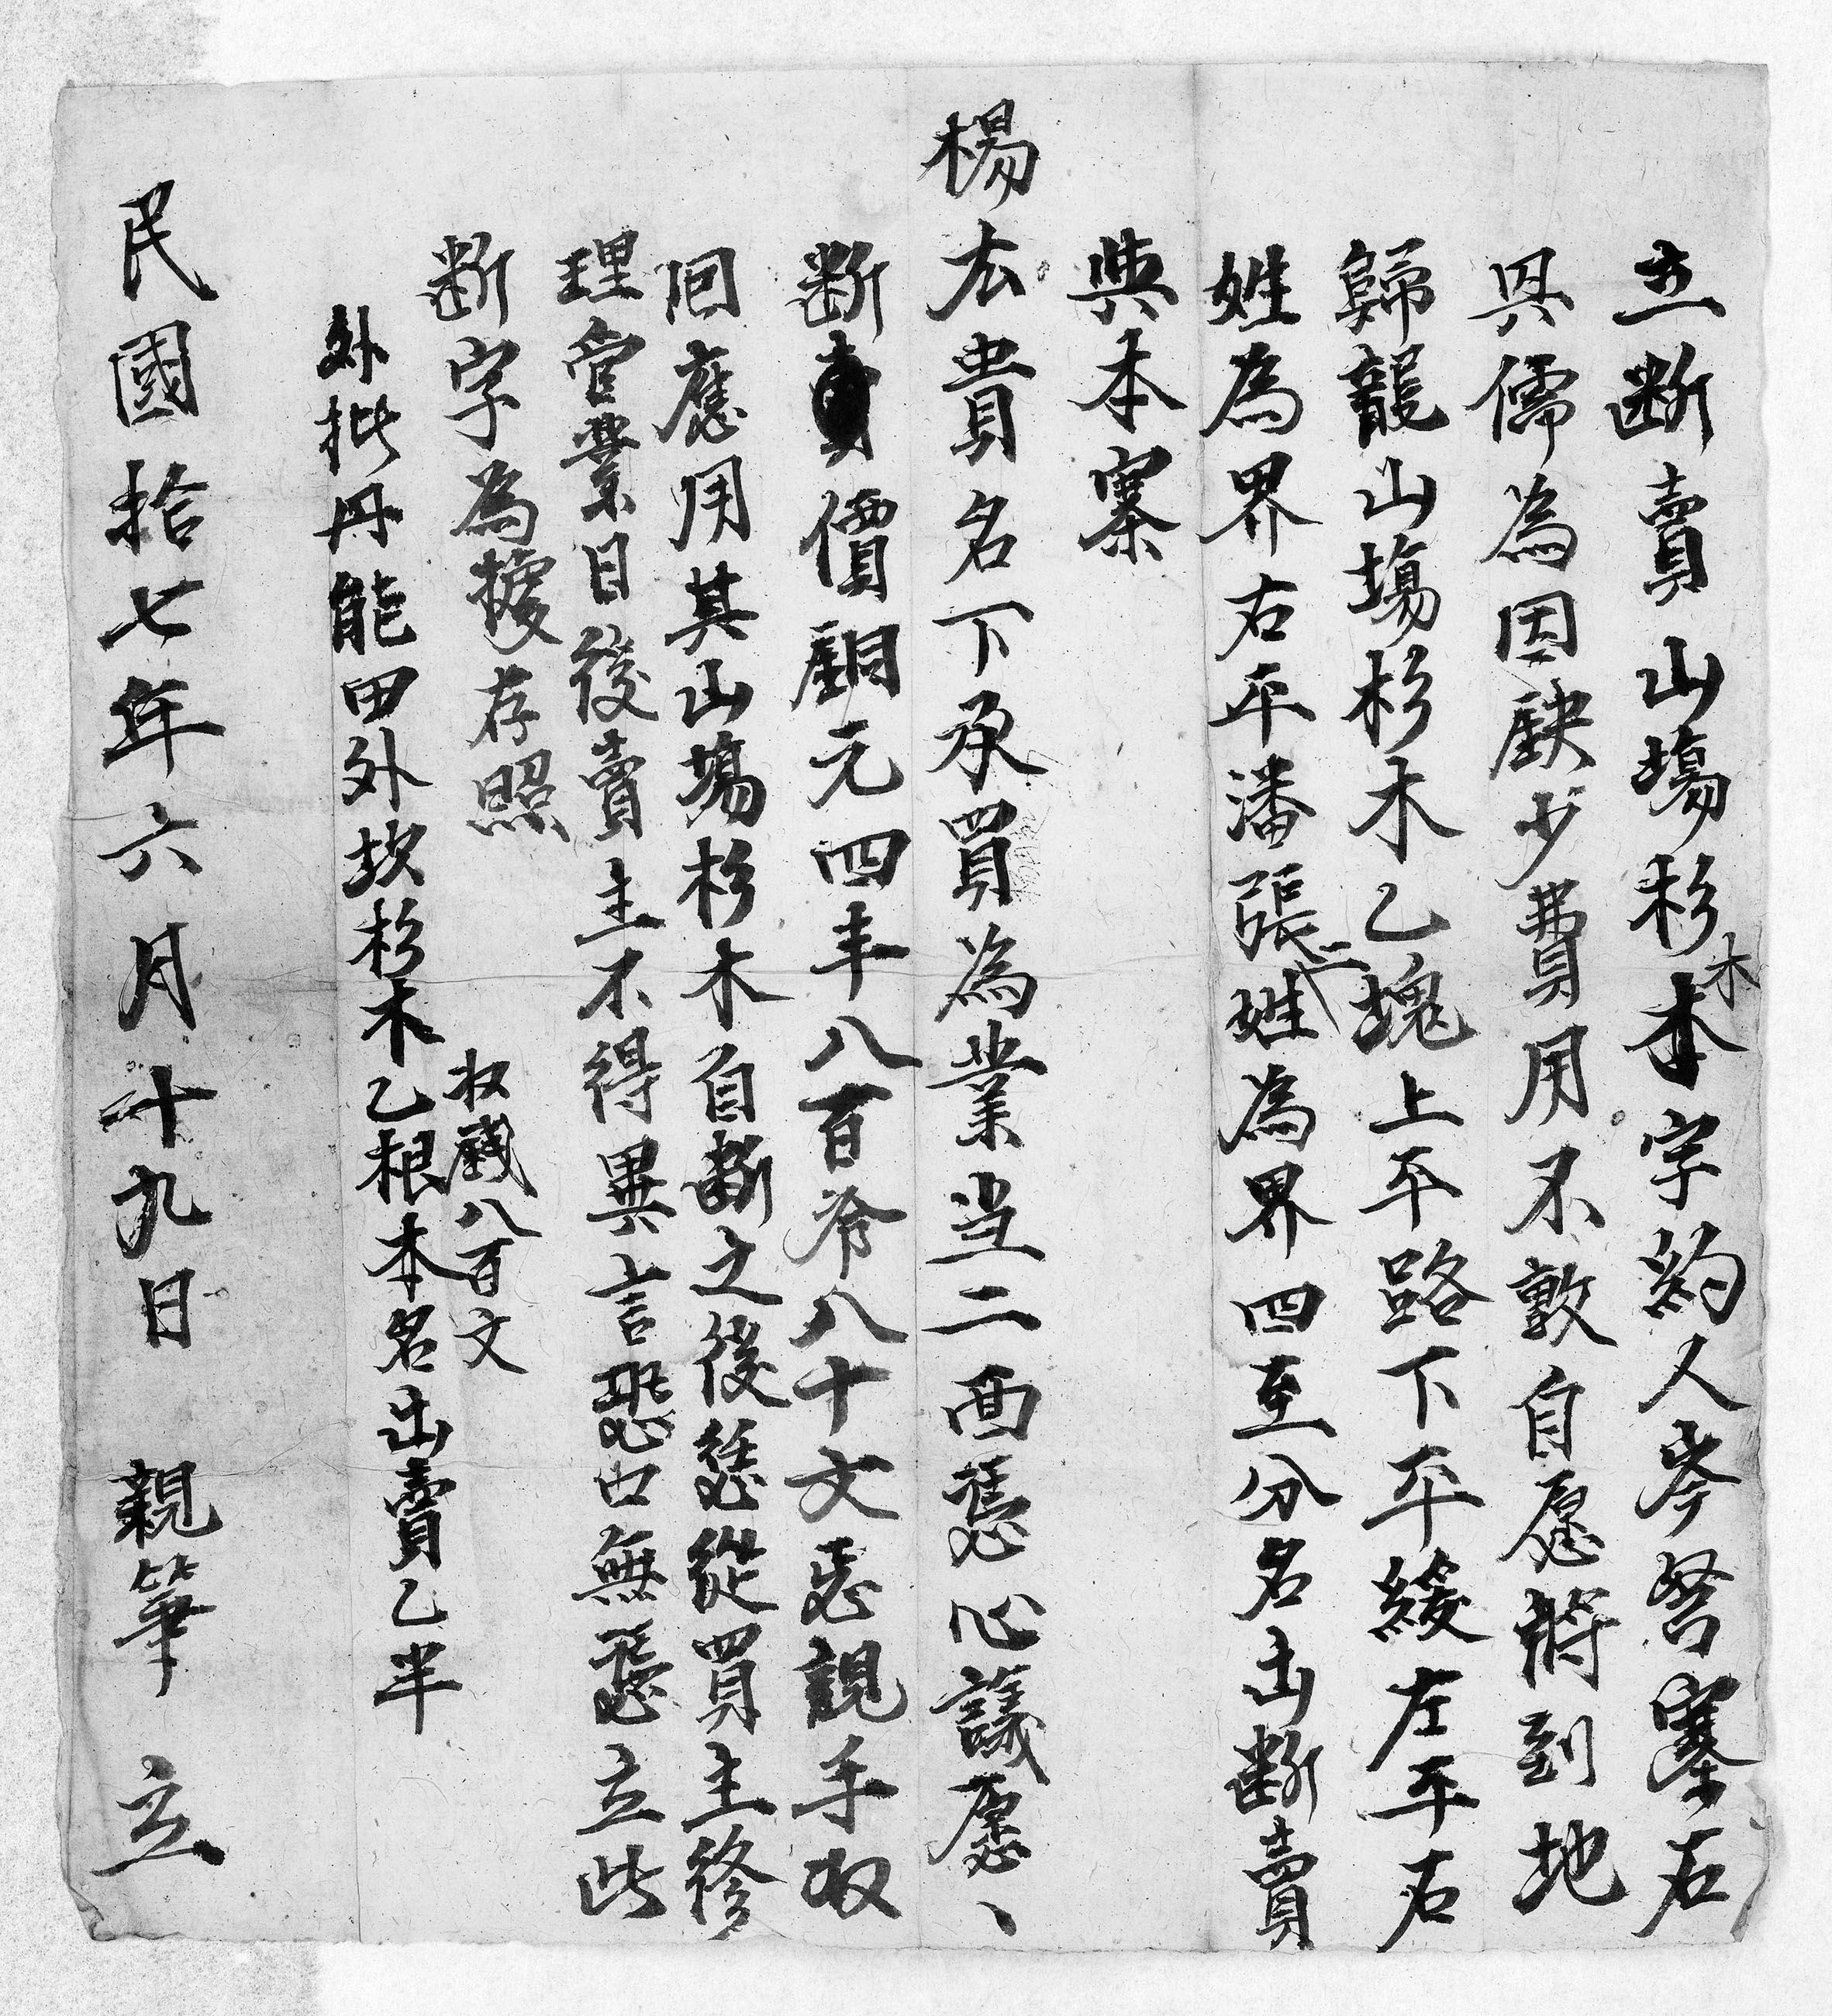 立断賣山塲杉木字約人岑努寨石
具儒為因缺少費用不敷自愿將到地
歸龍山塲杉木乙塊上平路下平綾左平石
姓為界右平潘張二姓為界四至分名出断賣
與本寨
楊太貴名下承買為業当二面憑心議愿、
断賣價銅元四丰八百令八十文憑親手收
囬應用其山塲杉木自断之後憑從買主修
理管業日後賣主不得異言恐口無憑立此
断字為據存照
收錢八百文
外批丹能田外坎杉木乙根本名出賣乙半
民國拾七年六月十九日 親筆 立